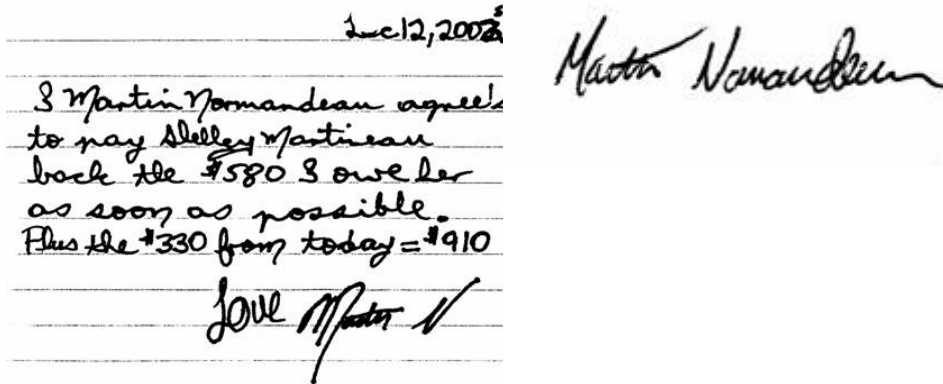 Dec 12, 2003
I Martin Normandeau agree's
to pay Shelley Martineau
back the $580 I owe her
as soon as possible.
Plus the $330 from today = $910
Love Martin N
Martin Normandeau